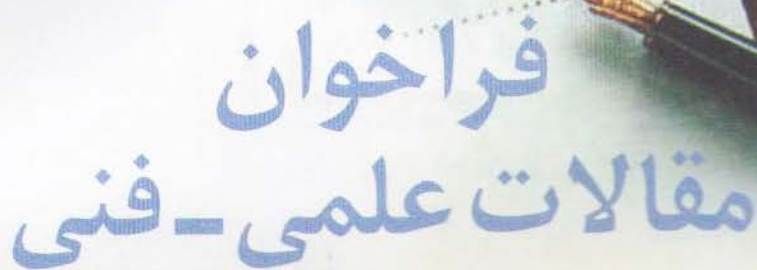 فراخوان
مقالات علمی - فنی